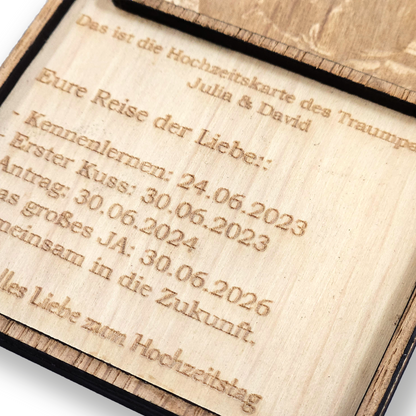 Das ist die Hochzeitskarte des Traumpa
Julia & David
Eure Reise der Liebe::
- Kennenlernen: 24.06.2023
- Erster Kuss: 30.06.2023
Antrag: 30.06.2024
as großes JA: 30.06.2026
meinsam in die Zukunft.
lles Liebe zum Hochzeitstag